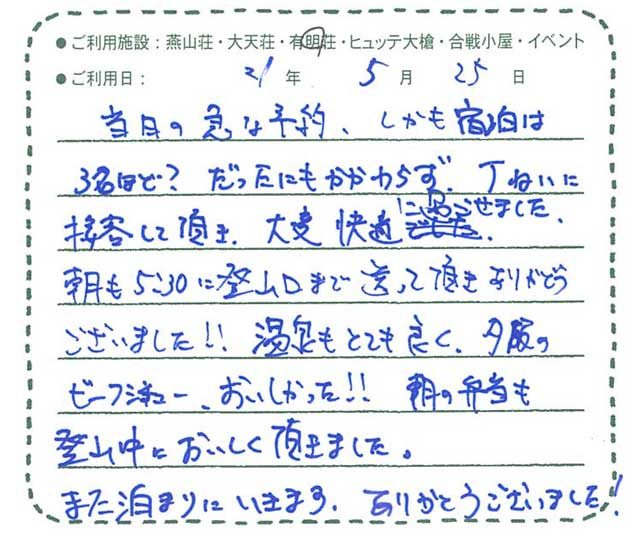 ● ご利用施設：燕山荘・大天荘・有明荘・ヒュッテ大槍・合戦小屋・イベント
● ご利用日： 21 年 5 月 25 日
当日の急な予約、しかも宿泊は
3名ほど？だったにもかかわらず、丁ねいに
接客して頂き、大変快適に過ごせました。
朝も5:30に登山口まで送って頂きありがとう
ございました!! 温泉もとても良く、夕飯の
ビーフシチュー、おいしかった!! 朝の弁当も
登山中においしく頂きました。
また泊まりにいきます。ありがとうございました!